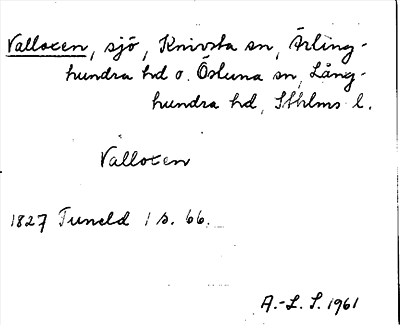 Valloxen, sjö, Knivsta sn, Ärling-
hundra hd o. Östuna sn, Lång-
hundra hd, Sthlms l.
Valloxen
1827 Tuneld 1 s. 66.
A.-L. S. 1961